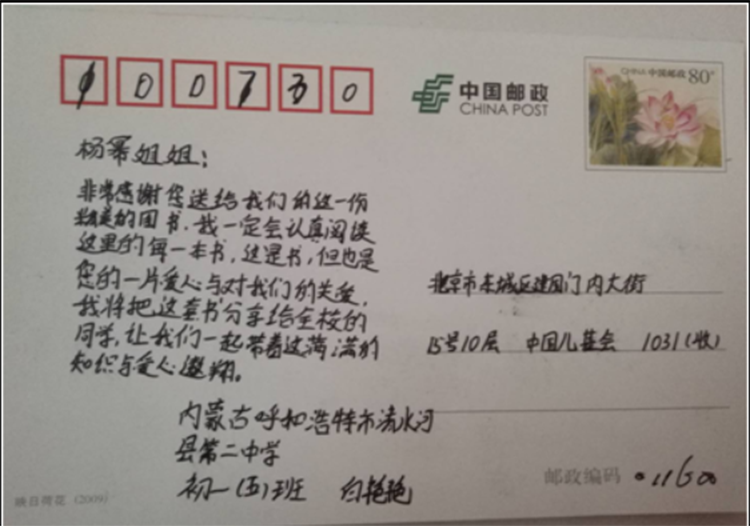 100730
中国邮政
CHINA POST
CHINA 中国邮政 80分
杨幂姐姐:
非常感谢您送给我们的这一份
精美的图书,我一定会认真阅读
这里的每一本书,这是书,但也是
您的一片爱心与对我们的关爱,
我将把这套书分享给全校的
同学,让我们一起带着这满满的
知识与爱心遨翔。
内蒙古呼和浩特市清水河
县第二中学
初一(五)班 白艳艳
北京市东城区建国门内大街
15号10层 中国儿基会 1031(收)
邮政编码 011600
映日荷花(2009)